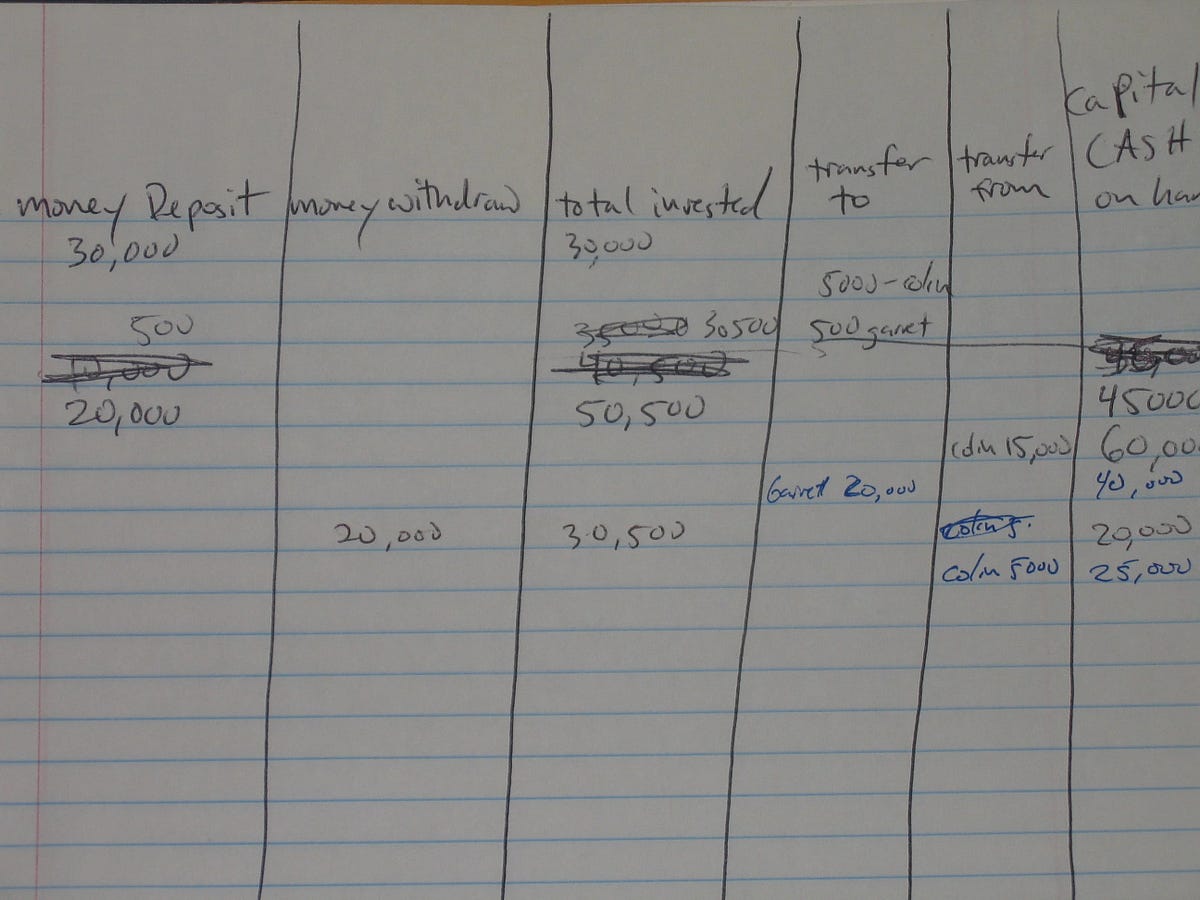 capital
CASH
on han
transfer to
transfer from
money Deposit money withdraw total invested
30,000 30,000
5000-colin
500 30500 500 garret
20,000 50,500 45000
colin 15,000 60,00
Garret 20,000 40,000
20,000 30,500 20,000
colin 5000 25,000